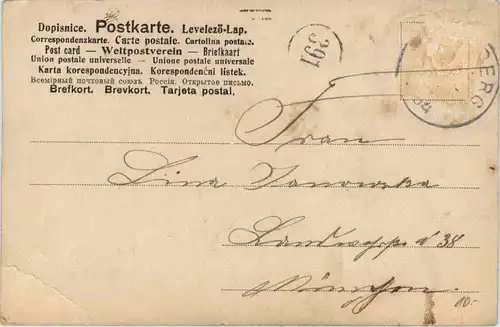 Dopisnice. Postkarte. Levelező-Lap.
Correspondenzkarte. Carte postale. Cartolina postale.
Post card — Weltpostverein — Briefkaart
Union postale universelle — Unione postale universale
Karta korespondencyjna. Korespondenční lístek.
Всемірный почтовый союзъ. Россія. Открытое письмо.
Brefkort. Brevkort. Tarjeta postal.
391
BERG
Frau
Lina Janowska
38
München
80.-